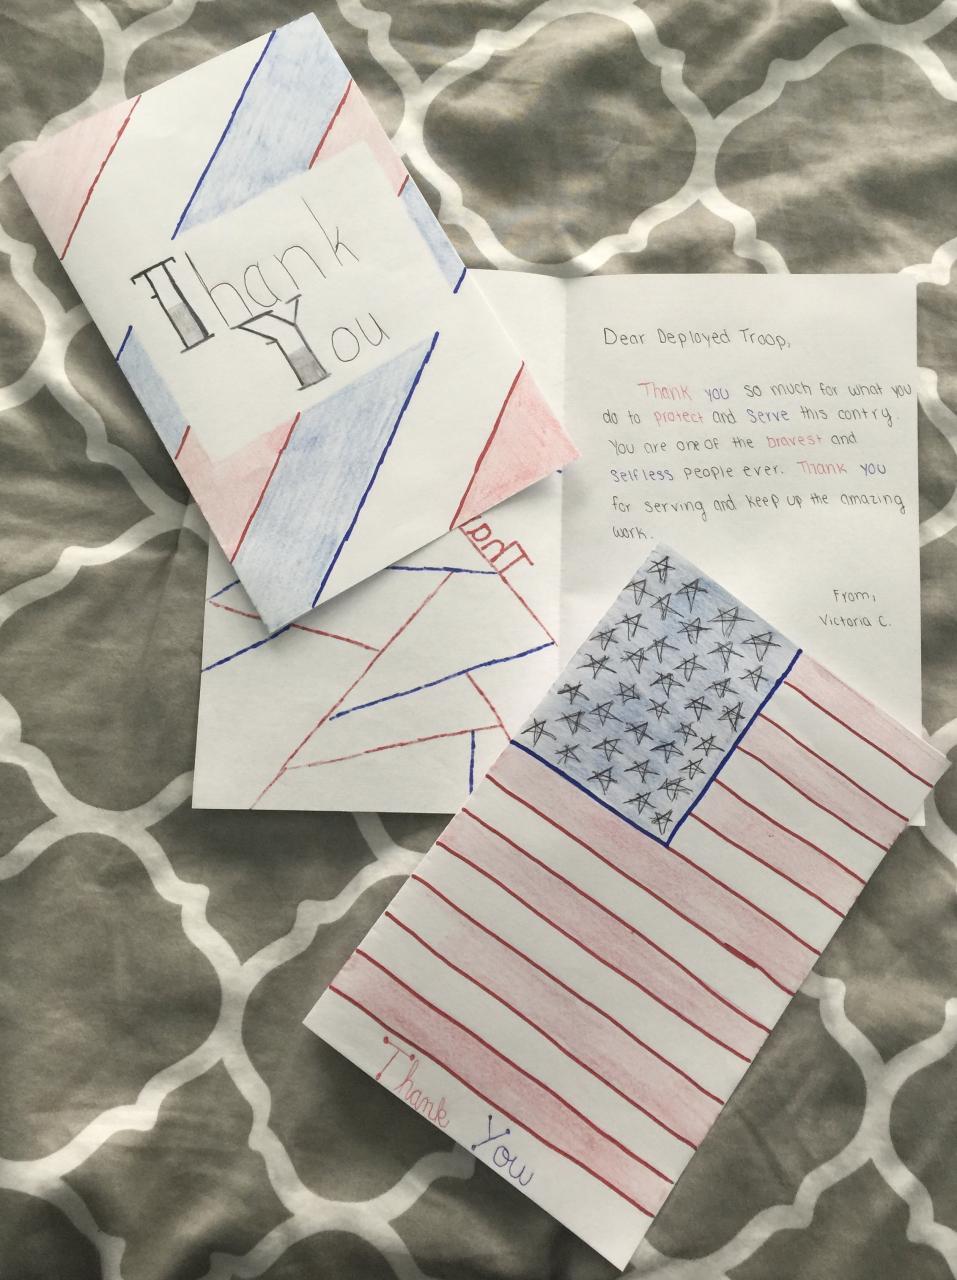 Thank
You
Dear Deployed Troop,
Thank you so much for what you
do to protect and serve this contry.
You are one of the bravest and
selfless people ever. Thank you
for serving and keep up the amazing
work.
From,
Victoria C.
Thank You